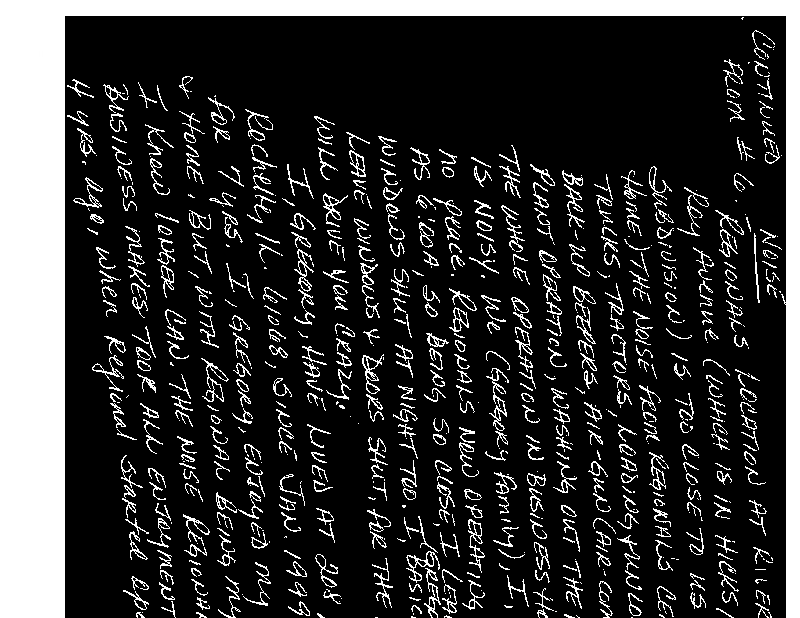 CONTINUED
FROM # 6. NOISE
REGIONALS LOCATION AT RIVER
ROY AVENUE (WHICH IS IN HICKS
SUBDIVISION) IS TOO CLOSE TO US
HOME) THE NOISE FROM REGIONAL'S
TRUCKS, TRACTORS, LOADING,
BACK-UP BEEPERS, AIR-GUN (AIR-
PLANT OPERATION, WASHING OUT THE
THE WHOLE OPERATION IN BUSINESS
IS NOISY. WE (GREGORY Family), I,
NO PEACE. REGIONALS NOW OPERATING
AS 6:00A, SO BEING SO CLOSE, I
WINDOWS SHUT AT NIGHT TOO. I,
LEAVE WINDOWS & DOORS SHUT, FOR THE
WILL DRIVE YOU CRAZY.
I, GREGORY, HAVE LIVED AT 208
Rochelle, IL. 61068, SINCE JAN. 1999
for 7 yrs. I, GREGORY, ENJOYED my
& HOME. BUT, WITH REGIONAL BEING my
I KNOW LONGER CAN. THE NOISE
BUSINESS MAKES TOOK ALL ENJOYMENT
4 yrs. ago, when Regional started